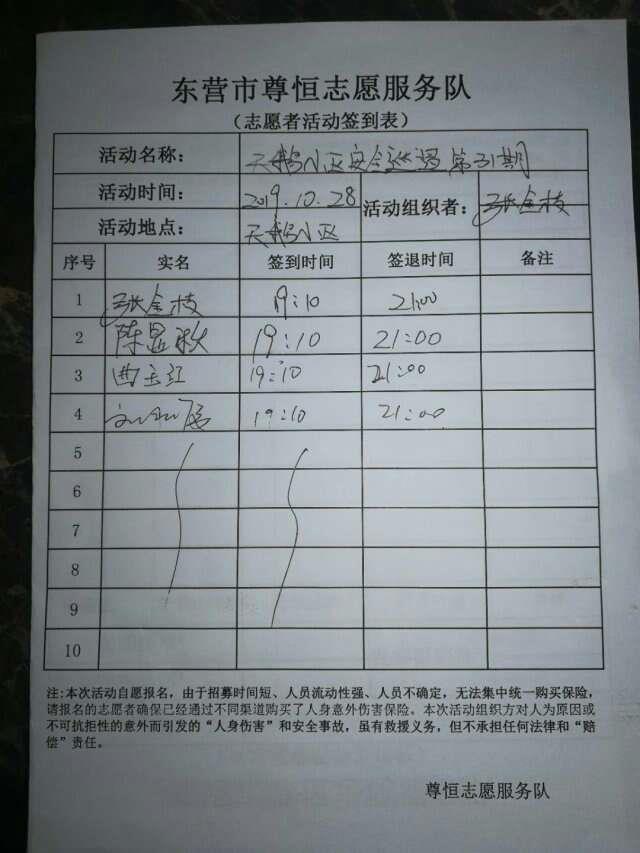 东营市尊恒志愿服务队
（志愿者活动签到表）
活动名称： 天鹅小区安全巡逻第31期
活动时间： 2019.10.28 活动组织者： 张全枝
活动地点： 天鹅小区
序号 实名 签到时间 签退时间 备注
1 张全枝 19:10 21:00
2 陈显秋 19:10 21:00
3 曲玉江 19:10 21:00
4 19:10 21:00
5
6
7
8
9
10
注:本次活动自愿报名，由于招募时间短、人员流动性强、人员不确定，无法集中统一购买保险，
请报名的志愿者确保已经通过不同渠道购买了人身意外伤害保险。本次活动组织方对人为原因或
不可抗拒性的意外而引发的“人身伤害”和安全事故，虽有救援义务，但不承担任何法律和“赔
偿”责任。
尊恒志愿服务队